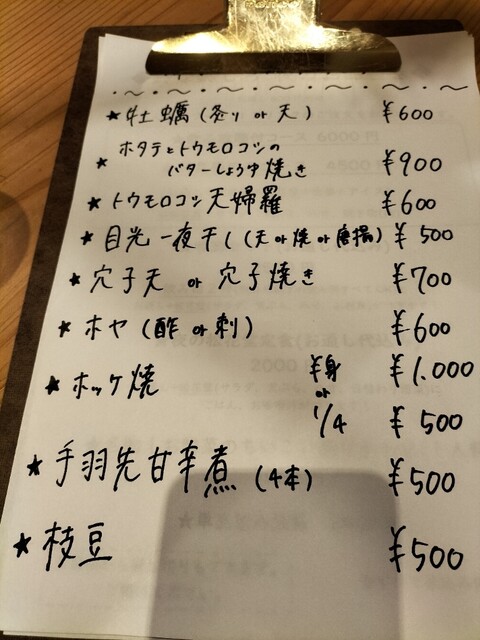 ★ 牡蠣 (炙り or 天) ¥600
ホタテとトウモロコシの
★ バターしょうゆ焼き ¥900
★ トウモロコシ天婦羅 ¥600
★ 目光一夜干し (天 or 焼 or 唐揚) ¥500
★ 穴子天 or 穴子焼き ¥700
★ ホヤ (酢 or 刺) ¥600
★ ホッケ焼 半身 ¥1.000
or
1/4 ¥500
★ 手羽先甘辛煮 (4本) ¥500
★ 枝豆 ¥500